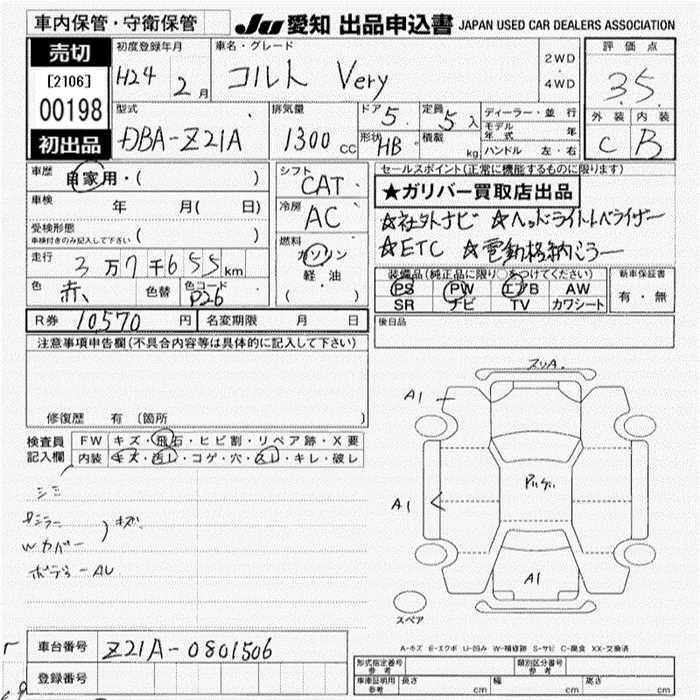 車内保管・守衛保管
JU 愛知 出品申込書 JAPAN USED CAR DEALERS ASSOCIATION
売切
[2106]
00198
初出品
初度登録年月
H24 2月
車名・グレード
コルト Very
2WD
・
4WD
評価点
3.5
外装 内装
C B
型式
DBA-Z21A
排気量
1300CC
ドア 5
定員 5人
形状 HB
積載 kg
ディーラー・並行
モデル年式 年
ハンドル 左・右
車歴
自家用・( )
車検 年 月( 日)
受検形態
車検付きのみ記入して下さい ( )
走行 3万7千655km
色 赤、 色替 色コード P26
シフト
CAT
冷房
AC
燃料
ガソリン
軽・油
( )
セールスポイント(正常に機能するものに限ります)
★ガリバー買取店出品
☆社外ナビ ☆ヘッドライトレベライザー
☆ETC ☆電動格納ミラー
装備品(純正品に限り○をつけてください)
PS PW エアB AW
SR ナビ TV カワシート
新車保証書
有・無
R券 10570円 名変期限 月 日
後日品
注意事項申告欄(不具合内容等は具体的に記入して下さい)
修復歴 有 〔箇所 〕
検査員記入欄
FW キズ・飛石・ヒビ割・リペア跡・X要
内装 キズ・汚レ・コゲ・穴・スレ・キレ・破レ
シミ
Wカバー
キズ
ボデー AU
スリA.
A1
A1
A1
スペア
A-キズ E-エクボ U-凹み W-補修跡 S-サビ C-腐食 XX-交換済
車台番号 Z21A-0801506
登録番号
型式指定番号 参考
類別区分番号 参考
車庫証明用 参考 長さ cm 幅 cm 高さ cm